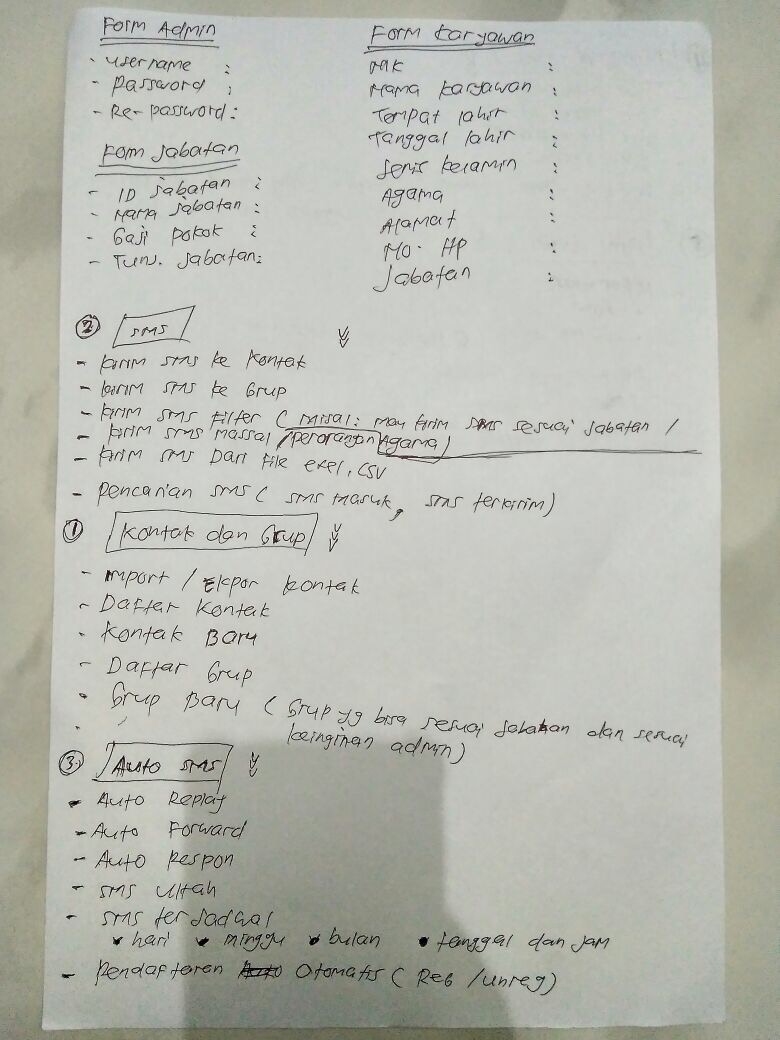 Form Admin
- username :
- Password :
- Re-password :
Form Jabatan
- ID Jabatan :
- Nama Jabatan :
- Gaji Pokok :
- Tunj. Jabatan :
Form Karyawan
NIK :
Nama Karyawan :
Tempat lahir :
Tanggal lahir :
Jenis kelamin :
Agama :
Alamat :
No. HP :
Jabatan :
② SMS
- kirim SMS ke Kontak
- kirim SMS ke Grup
- kirim SMS Filter ( misal : mau kirim SMS sesuai Jabatan /
- kirim SMS massal / perorangan Agama )
- kirim SMS Dari File exel, CSV
- Pencarian SMS ( SMS Masuk, SMS terkirim )
① Kontak dan Grup
- Import / Ekpor kontak
- Daftar Kontak
- Kontak Baru
- Daftar Grup
- Grup Baru ( Grup yg bisa sesuai Jabatan dan sesuai
keinginan admin )
③. Auto SMS
- Auto Replay
- Auto Forward
- Auto Respon
- SMS Ultah
- SMS terjadwal
• hari • minggu • bulan • tanggal dan jam
- Pendaftaran Otomatis ( Reg / unreg )